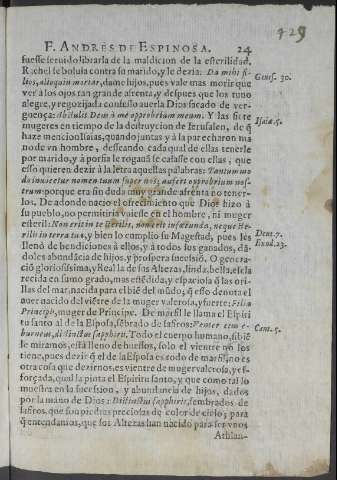 729
F. ANDRES DE ESPINOSA. 24
fuesse seruido librarla de la maldicion de la esterilidad.
Rachel se boluia contra su marido, y le dezia: Da mihi fi-
lios, alioquin moriar, dame hijos, pues vale mas morir que
ver a los ojos tan grande afrenta, y despues que los tuuo
alegre, y regozijada confesso auerla Dios sacado de ver-
guença: Abstulit Deus à me opprobrium meum. Y las siete
mugeres en tiempo de la destruycion de Ierusalen, de q̃
haze mencion Isaias, quãdo juntas y à la par echaron ma
no de vn hombre, desseando cada qual de ellas tenerle
por marido, y à porfia le rogauã se casasse con ellas, que
esso quieren dezir à la letra aquellas palabras: Tantummo
do inuocetur nomen tuum super nos, aufert opprobrium nos-
trum: porque era sin duda muy grande afrenta no tener-
los. De adonde nacio el ofrecimiento que Dios hizo à
su pueblo, no permitiria vuiesse en el hombre, ni muger
esteril: Non erit in te sterilis, non erit infœcunda, neque ste-
rilis in terra tua, y bien lo cumplio su Magestad, pues les
llenó de bendiciones à ellos, y à todos sus ganados, dã-
doles abundãcia de hijos, y prospera sucessiõ. O genera-
ciõ gloriosissima, y Real la de sus Altezas, linda, bella, escla
recida en sumo grado, mas estẽdida, y espaciosa q̃ las ori-
llas del mar, nacida para el biẽ del mũdo, q̃ esso denota el
auer nacido del viẽtre de la muger valerosa, y fuerte: Filia
Principis, muger de Principe. De marfil le llama el Espiri
tu santo al de la Esposa, sẽbrado de safiros: Venter eius e-
burneus, distinctus sapphiris. Todo el cuerpo humano, si biẽ
le miramos, està lleno de huessos, solo el vientre no los
tiene, pues dezir q̃ el de la Esposa es todo de marfil, no es
otra cosa que dezirnos, es vientre de muger valerosa, y es-
forçada, qual la pinta el Espiritu santo, y que como tal lo
muestra en la sucession, y abundancia de hijos, dados
por la mano de Dios: Distinctus sapphiris, sembrados de
safiros, que son piedras preciosas de color de cielo; para
q̃ entendamos, que sus Altezas han nacido para ser vnos
Athlan-
Genes. 30.
Isaiæ. 4.
Deut. 7.
Exod. 23.
Cant. 5.